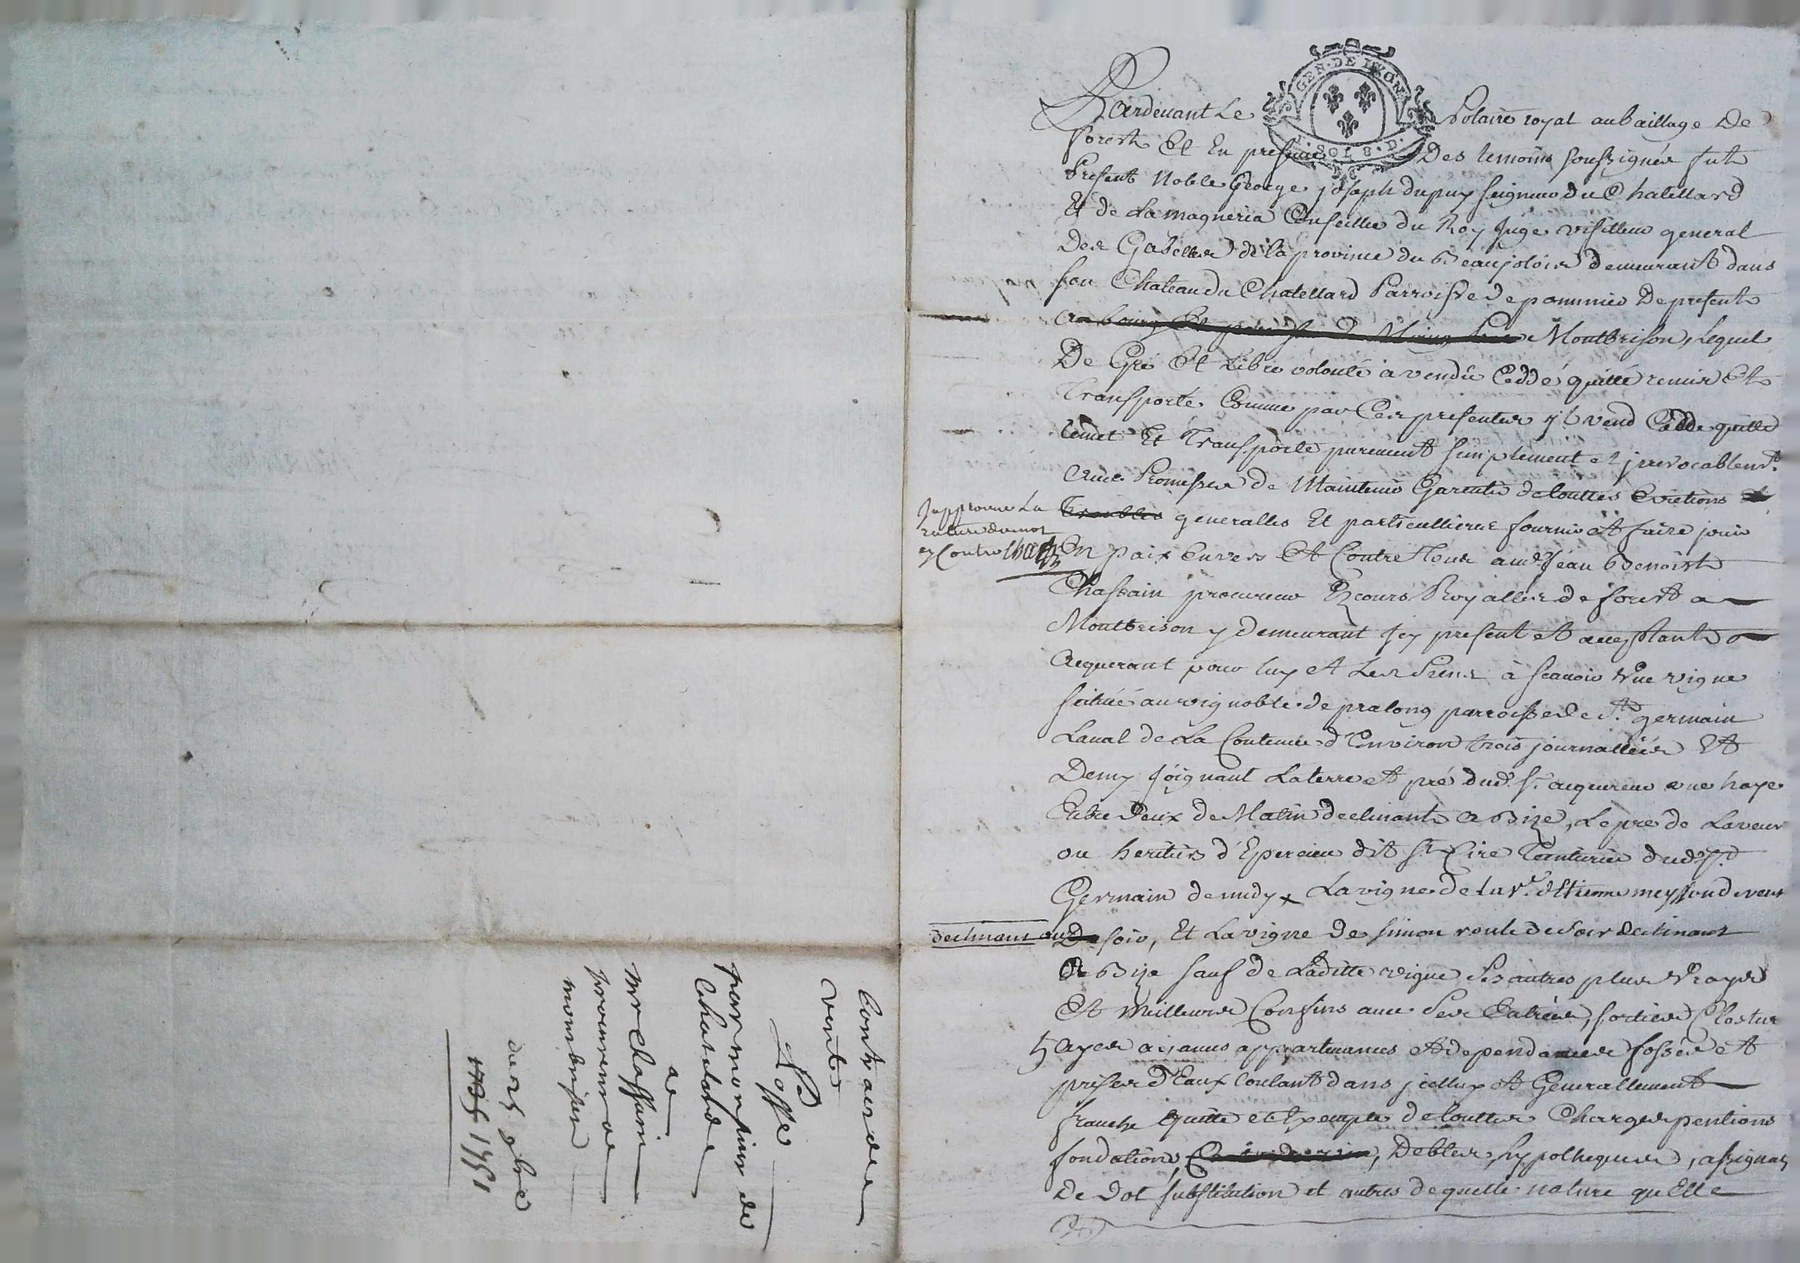 GEN. DE LYON
SOLS. D.
Pardevant Le Notaire royal au baillage De
forest Et En presence Des temoins soussignés fut
Present Noble George joseph dupuy seigneur du Chatellard
Et de La magneria Conseiller du Roy Juge visiteur general
Des Gabelles de la province du Beaujolois demeurant dans
son Chateau du Chatellard Parroisse de pommier De present
a Montbrison, Lequel
De Gré Et Libre volonté a vendu Ceddé quitté remis Et
Transporté Comme par Ces presentes il vend Cedde quitte
remet Et Transporte purement simplement et jrrevocablemt.
avec Promesse de Maintenir Garentir de touttes Evictions
Troubles generalles Et particullieres fournir et faire jouir
En paix Envers Et Contre Tous a me. Jean Benoist
Chassain procureur Ez cours Royalles de forest a
Montbrison y demeurant jcy present et acceptant
acquerant pour luy et Les siens à scavoir Une vigne
scituée au vignoble de pralong parroisse de St. germain
Laval de La Contenue d'Environ trois journallées Et
Demy Joignant La terre et pré dud. Sr. acquereur une haye
Entre deux de Matin declinant a Bize, Le pré de Laveur
ou heritiers d'Epercieu dit St. Cire Teinturier dud. St.
Germain de midy La vigne de la ve. d'Etienne meyssonde vent
declinant au
soir, Et La vigne de simon roule de soir declinant
a Bize sauf de Laditte vigne ses autres plus vrays
Et Meilleurs Confins avec ses Entrées, sorties Clostur
hayes aisances appartenances et dependances fossés et
prises d'Eaux Coulant dans jcelluy et Generallement
franche quitte et Exempte de touttes Charges pentions
fondations, Debtes, hypotheques, assignat
De dot substitution et autres de quelle nature qu'Elle
J'approuve La
rature du mot
cy Contre
Contract de
vente
Passé
par monsieur du
Chatelard
a
Mr Chassain
procureur a
montbrison
du 25 9bre
1751